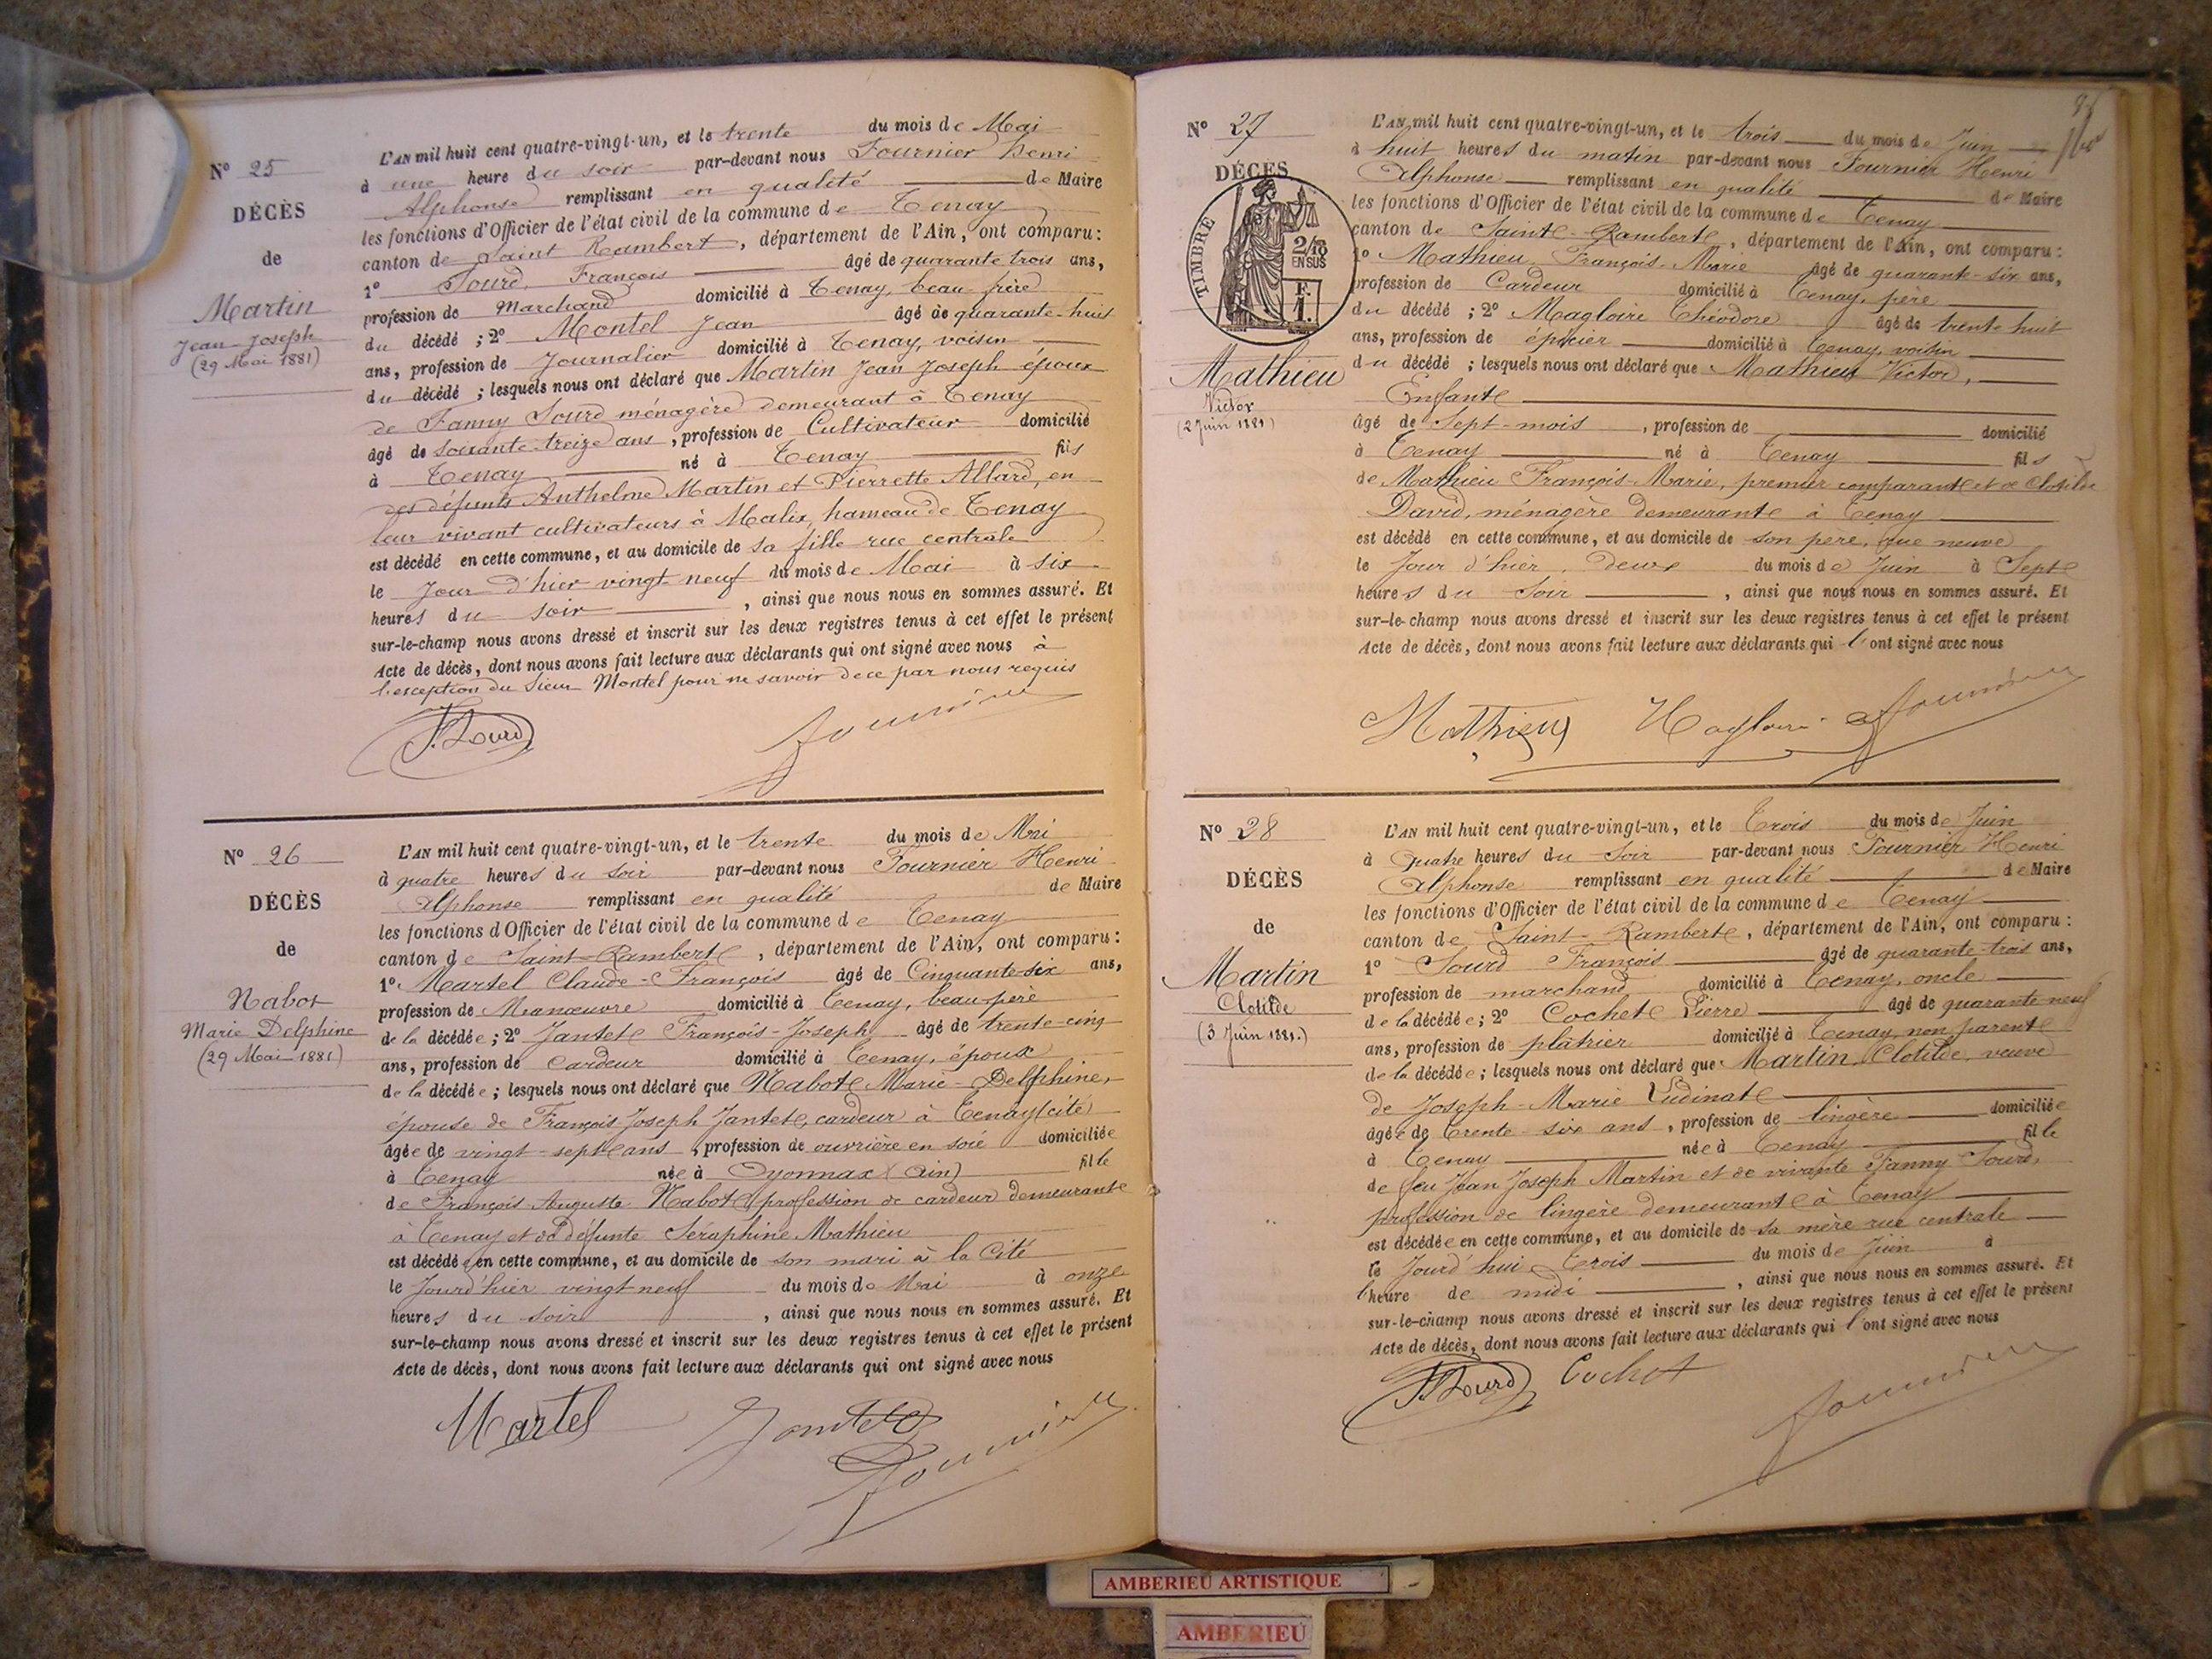 N° 25
DÉCÈS
de
Martin
Jean-Joseph
(29 Mai 1881)
L'AN mil huit cent quatre-vingt-un, et le trente du mois de Mai
à une heure du soir par-devant nous Fournier Henri
Alphonse remplissant en qualité de Maire
les fonctions d'Officier de l'état civil de la commune de Tenay
canton de Saint Rambert, département de l'Ain, ont comparu :
1° Sourd, François âgé de quarante trois ans,
profession de Marchand domicilié à Tenay, beau-frère
du décédé ; 2° Montel Jean âgé de quarante-huit
ans, profession de Journalier domicilié à Tenay, voisin
du décédé ; lesquels nous ont déclaré que Martin Jean Joseph époux
de Fanny Sourd ménagère demeurant à Tenay
âgé de soixante-treize ans, profession de Cultivateur domicilié
à Tenay né à Tenay fils
des défunts Anthelme Martin et Pierrette Allard, en
leur vivant cultivateurs à Malix, hameau de Tenay
est décédé en cette commune, et au domicile de sa fille rue centrale
le Jour d'hier vingt neuf du mois de Mai à six
heures du soir, ainsi que nous nous en sommes assuré. Et
sur-le-champ nous avons dressé et inscrit sur les deux registres tenus à cet effet le présent
Acte de décès, dont nous avons fait lecture aux déclarants qui ont signé avec nous à
l'exception du Sieur Montel pour ne savoir de ce par nous requis
F. Sourd Fournier
N° 26
DÉCÈS
de
Nabot
Marie Delphine
(29 Mai 1881)
L'AN mil huit cent quatre-vingt-un, et le trente du mois de Mai
à quatre heures du soir par-devant nous Fournier Henri
Alphonse remplissant en qualité de Maire
les fonctions d'Officier de l'état civil de la commune de Tenay
canton de Saint-Rambert, département de l'Ain, ont comparu :
1° Martel Claude-François âgé de Cinquante-six ans,
profession de Manœuvre domicilié à Tenay, beau-père
de la décédée ; 2° Jantet François-Joseph âgé de trente-cinq
ans, profession de cardeur domicilié à Tenay, époux
de la décédée ; lesquels nous ont déclaré que Nabot Marie-Delphine,
épouse de François Joseph Jantet, cardeur à Tenay (cité)
âgée de vingt-sept ans, profession de ouvrière en soie domiciliée
à Tenay née à Oyonnax (Ain) fille
de François Auguste Nabot profession de cardeur demeurant
à Tenay et de défunte Séraphine Mathieu
est décédé en cette commune, et au domicile de son mari à la Cité
le Jourd'hier vingt neuf du mois de Mai à onze
heures du soir, ainsi que nous nous en sommes assuré. Et
sur-le-champ nous avons dressé et inscrit sur les deux registres tenus à cet effet le présent
Acte de décès, dont nous avons fait lecture aux déclarants qui ont signé avec nous
Martel Jantet
Fournier
N° 27
DÉCÈS
TIMBRE
2/10
EN SUS
F.
1.
Mathieu
Victor
(2 Juin 1881)
L'AN mil huit cent quatre-vingt-un, et le trois du mois de Juin
à huit heures du matin par-devant nous Fournier Henri
Alphonse remplissant en qualité de Maire
les fonctions d'Officier de l'état civil de la commune de Tenay
canton de Saint-Rambert, département de l'Ain, ont comparu :
1° Mathieu François-Marie âgé de quarante-six ans,
profession de Cardeur domicilié à Tenay, père
du décédé ; 2° Magloire Théodore âgé de trente huit
ans, profession de épicier domicilié à Tenay, voisin
du décédé ; lesquels nous ont déclaré que Mathieu Victor,
Enfant
âgé de Sept-mois, profession de domicilié
à Tenay né à Tenay fils
de Mathieu François-Marie, premier comparant et de Clotilde
David, ménagère demeurant à Tenay
est décédé en cette commune, et au domicile de son père, rue neuve
le Jour d'hier, deux du mois de Juin à Sept
heures du Soir, ainsi que nous nous en sommes assuré. Et
sur-le-champ nous avons dressé et inscrit sur les deux registres tenus à cet effet le présent
Acte de décès, dont nous avons fait lecture aux déclarants qui l'ont signé avec nous
Mathieu Magloire Fournier
N° 28
DÉCÈS
de
Martin
Clotilde
(3 Juin 1881.)
L'AN mil huit cent quatre-vingt-un, et le Trois du mois de Juin
à quatre heures du Soir par-devant nous Fournier Henri
Alphonse remplissant en qualité de Maire
les fonctions d'Officier de l'état civil de la commune de Tenay
canton de Saint-Rambert, département de l'Ain, ont comparu :
1° Sourd François âgé de quarante-trois ans,
profession de marchand domicilié à Tenay, oncle
de la décédée ; 2° Cochet Pierre âgé de quarante neuf
ans, profession de plâtrier domicilié à Tenay, non parent
de la décédée ; lesquels nous ont déclaré que Martin Clotilde, veuve
de Joseph-Marie Ludinat
âgée de trente-six ans, profession de lingère domiciliée
à Tenay née à Tenay fille
de feu Jean Joseph Martin et de vivante Fanny Sourd,
profession de lingère demeurant à Tenay
est décédée en cette commune, et au domicile de sa mère rue centrale
le Jourd'hui Trois du mois de Juin à
l'heure de midi, ainsi que nous nous en sommes assuré. Et
sur-le-champ nous avons dressé et inscrit sur les deux registres tenus à cet effet le présent
Acte de décès, dont nous avons fait lecture aux déclarants qui l'ont signé avec nous
F. Sourd Cochet
Fournier
AMBERIEU ARTISTIQUE
AMBERIEU